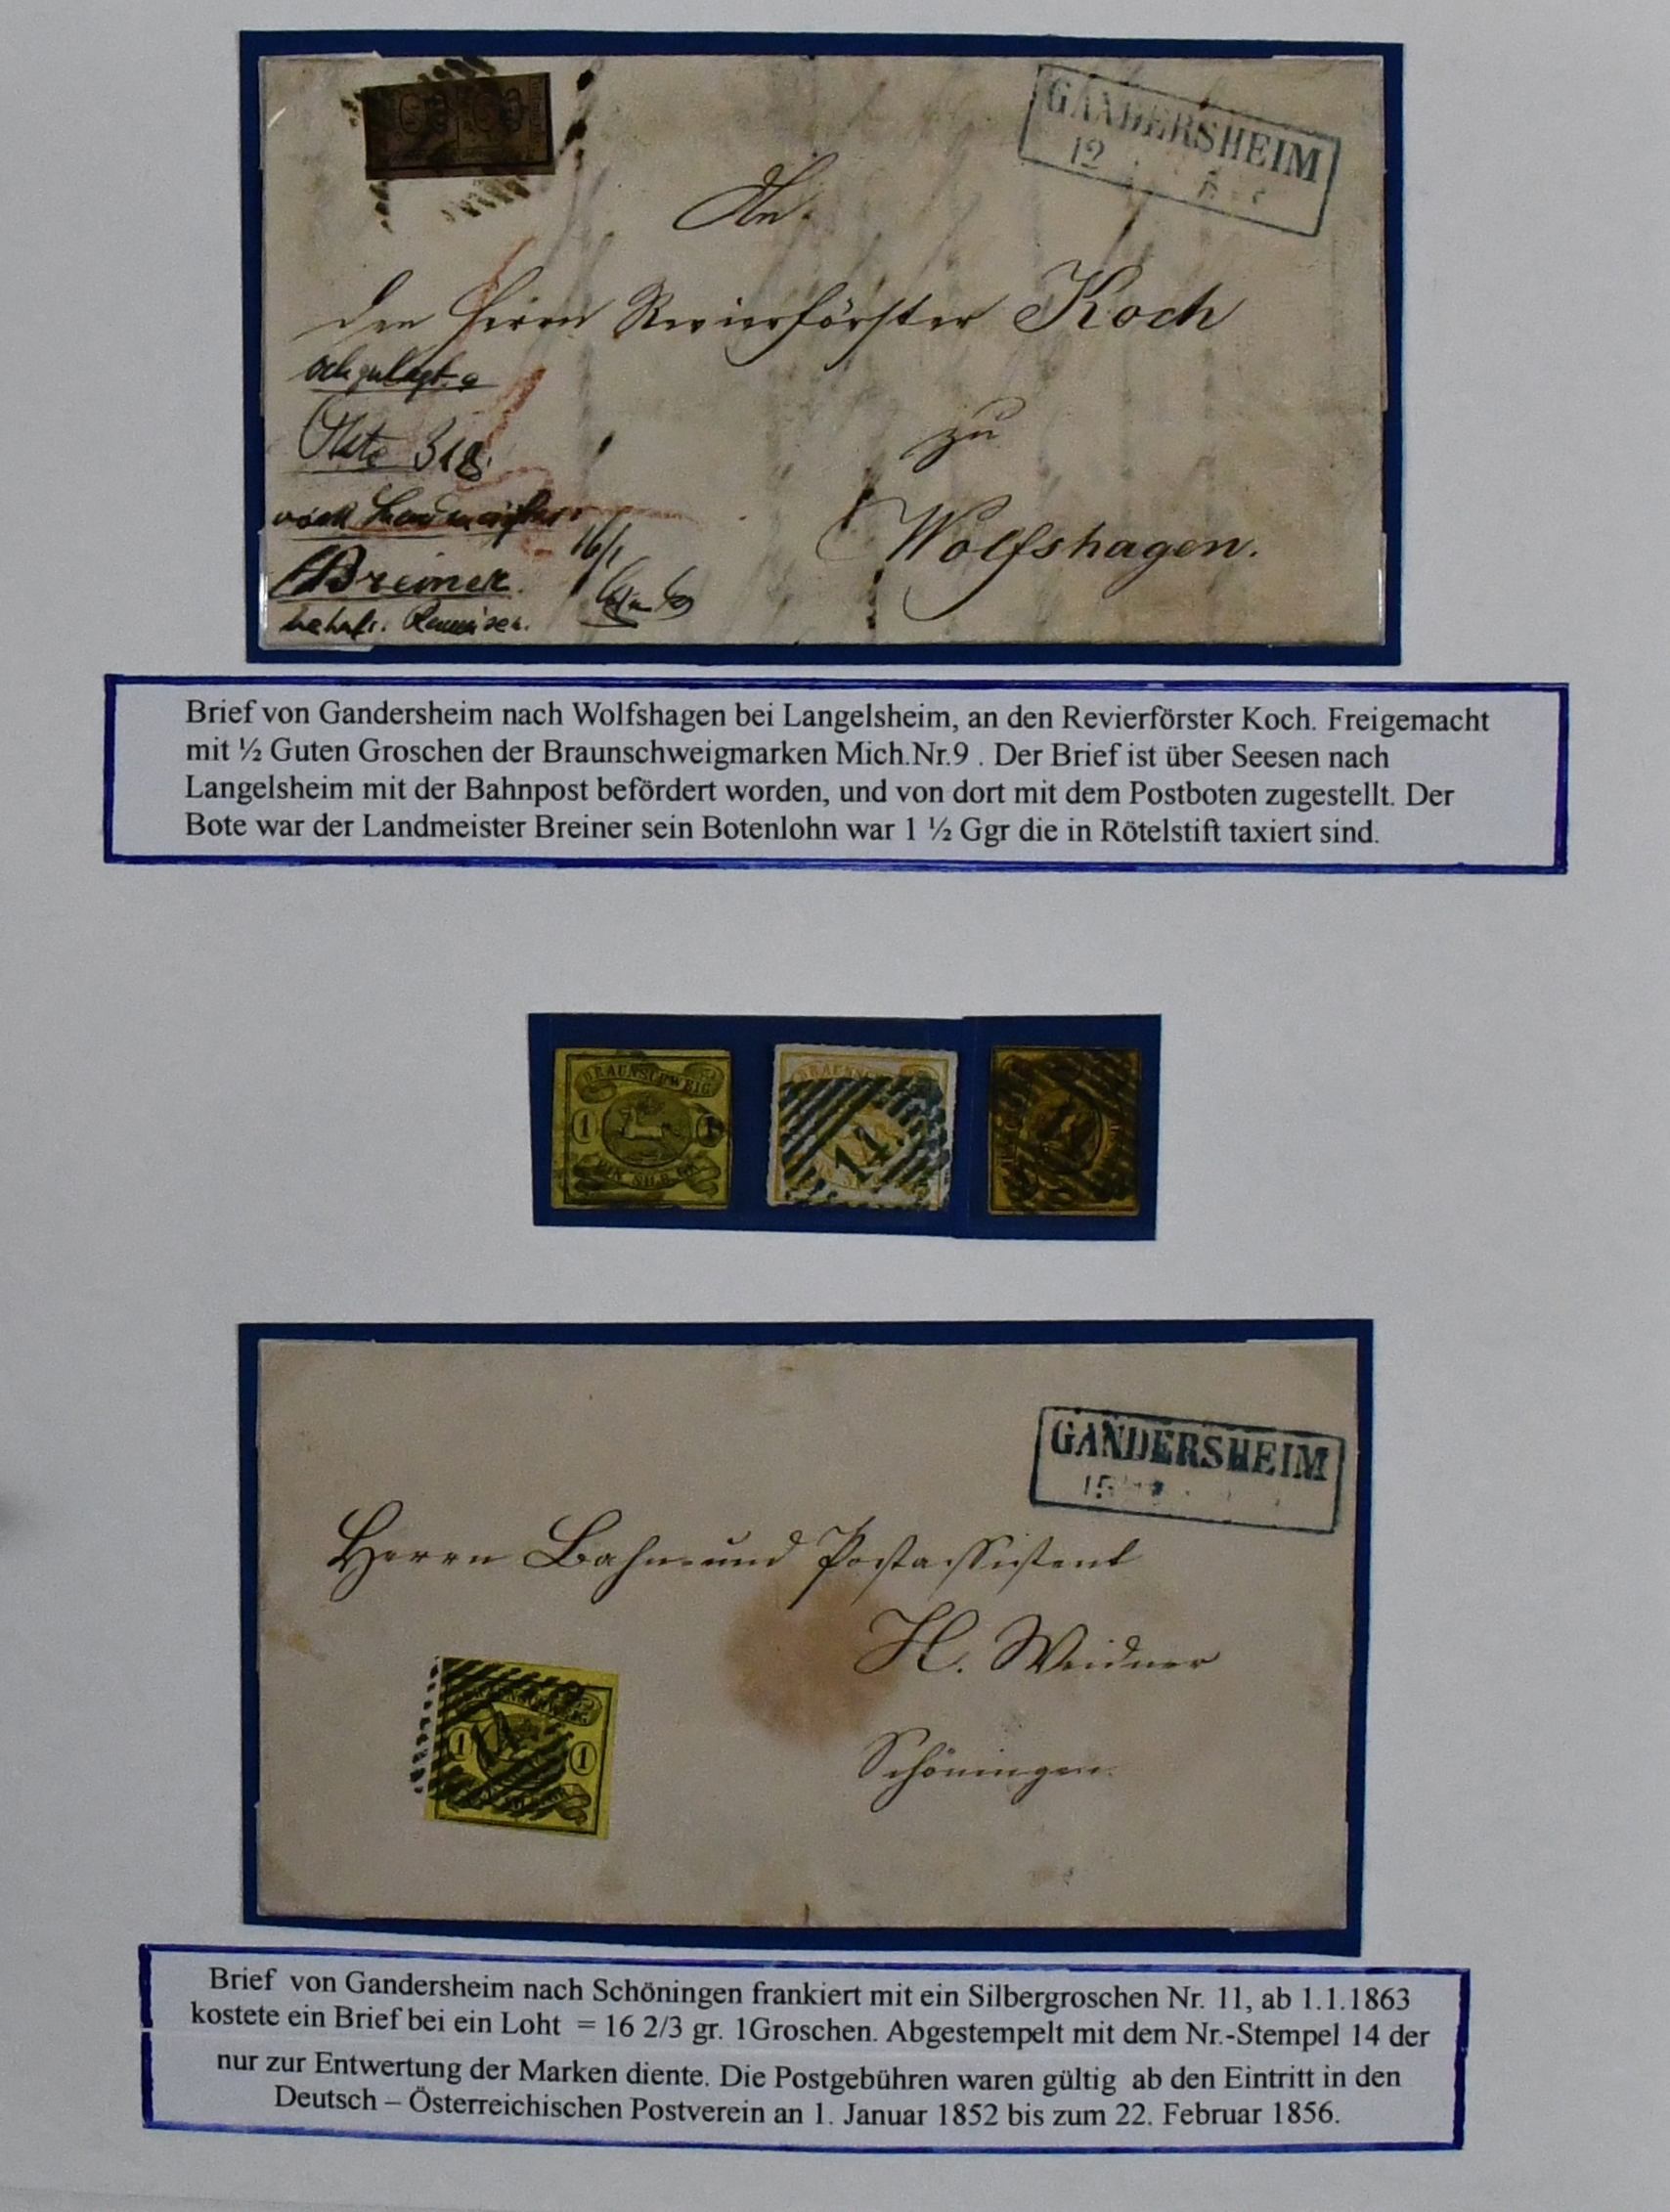 GANDERSHEIM
12
An
den Herrn Revierförster Koch
zu
Wolfshagen.
Breiner.
16/1
Brief von Gandersheim nach Wolfshagen bei Langelsheim, an den Revierförster Koch. Freigemacht
mit ½ Guten Groschen der Braunschweigmarken Mich.Nr.9 . Der Brief ist über Seesen nach
Langelsheim mit der Bahnpost befördert worden, und von dort mit dem Postboten zugestellt. Der
Bote war der Landmeister Breiner sein Botenlohn war 1 ½ Ggr die in Rötelstift taxiert sind.
BRAUNSCHWEIG
1 1
EIN SILB.GR.
14
GANDERSHEIM
15
Herrn Bahn- und Postassistent
H. Weidner
Schöningen.
1 1
Brief von Gandersheim nach Schöningen frankiert mit ein Silbergroschen Nr. 11, ab 1.1.1863
kostete ein Brief bei ein Loht = 16 2/3 gr. 1Groschen. Abgestempelt mit dem Nr.-Stempel 14 der
nur zur Entwertung der Marken diente. Die Postgebühren waren gültig ab den Eintritt in den
Deutsch – Österreichischen Postverein an 1. Januar 1852 bis zum 22. Februar 1856.